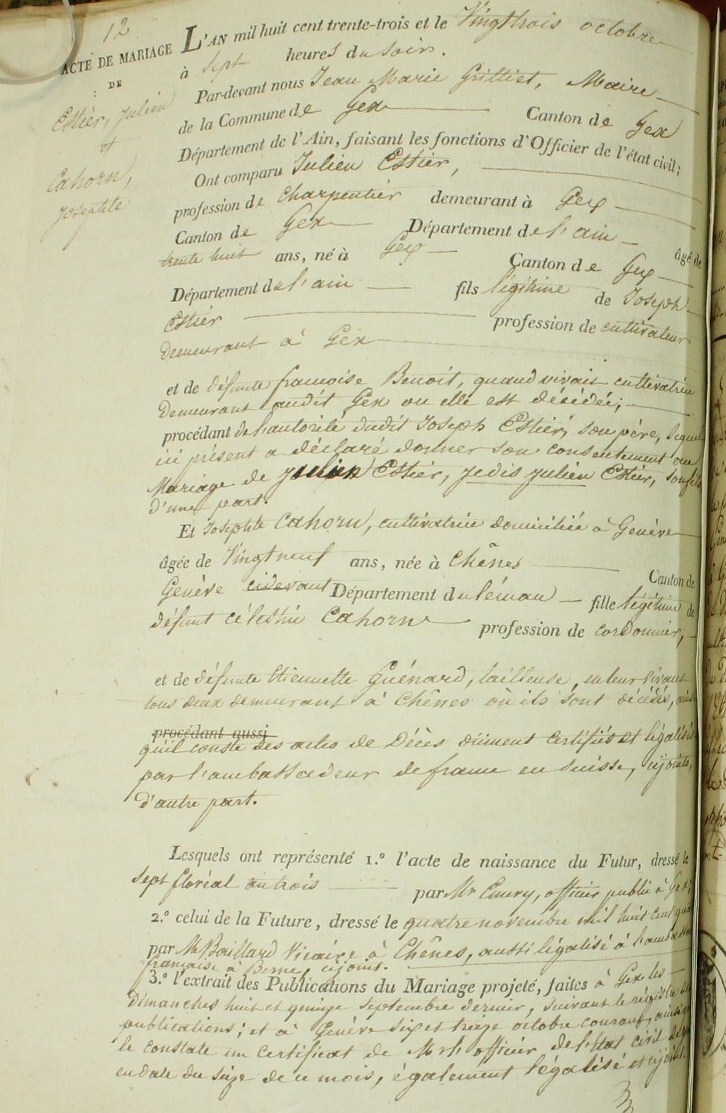 12
ACTE DE MARIAGE
DE
Estier, Julien
et
Cahorn,
Josephte
L'AN mil huit cent trente-trois et le Vingt trois octobre
à sept heures du soir.
Par-devant nous Jean Marie Grilliet, Maire
de la Commune de Gex Canton de Gex
Département de l'Ain, faisant les fonctions d'Officier de l'état civil;
Ont comparu Julien Estier,
profession de charpentier demeurant à Gex
Canton de Gex Département de l'ain âgé de
trente huit ans, né à Gex Canton de Gex
Département de l'ain fils légitime de Joseph
Estier profession de cultivateur
demeurant à Gex
et de défunte françoise Benoit, quand vivait cultivatrice
demeurant audit Gex ou elle est décédée;
procédant de l'autorité dudit Joseph Estier, son père, lequel
ici présent a déclaré donner son consentement au
Mariage de Julien Estier, je dis Julien Estier, son fils
d'une part.
Et Josephte Cahorn, cultivatrice domiciliée à Genève
âgée de Vingt neuf ans, née à Chênes Canton de
Genève cidevant Département du léman fille légitime de
défunt célestin Cahorn profession de cordonnier,
et de défunte Etiennette Guénard, tailleuse, en leur vivant
tous deux demeurant à Chênes où ils sont décédés, ainsi
procédant aussi
qu'il conste des actes de Décès dûment certifiés et légalisés
par l'ambassadeur de france en Suisse, cijoints,
d'autre part.
Lesquels ont représenté 1.º l'acte de naissance du Futur, dressé le
sept floréal an trois par Mr Emery, officier public à Gex
2.º celui de la Future, dressé le quatre novembre mil huit cent quatre
par Mr Baillard Vicaire à Chênes, aussi légalisé à
française à Berne, cijoint.
3.º l'extrait des Publications du Mariage projeté, faites à Gex les
dimanches huit et quinze septembre dernier, suivant le régistre
publications; et à Genève six et treize octobre courant, ainsi que
le constate un certificat de Mr l'officier de l'état civil
en date du seize de ce mois, également légalisé et cijoint